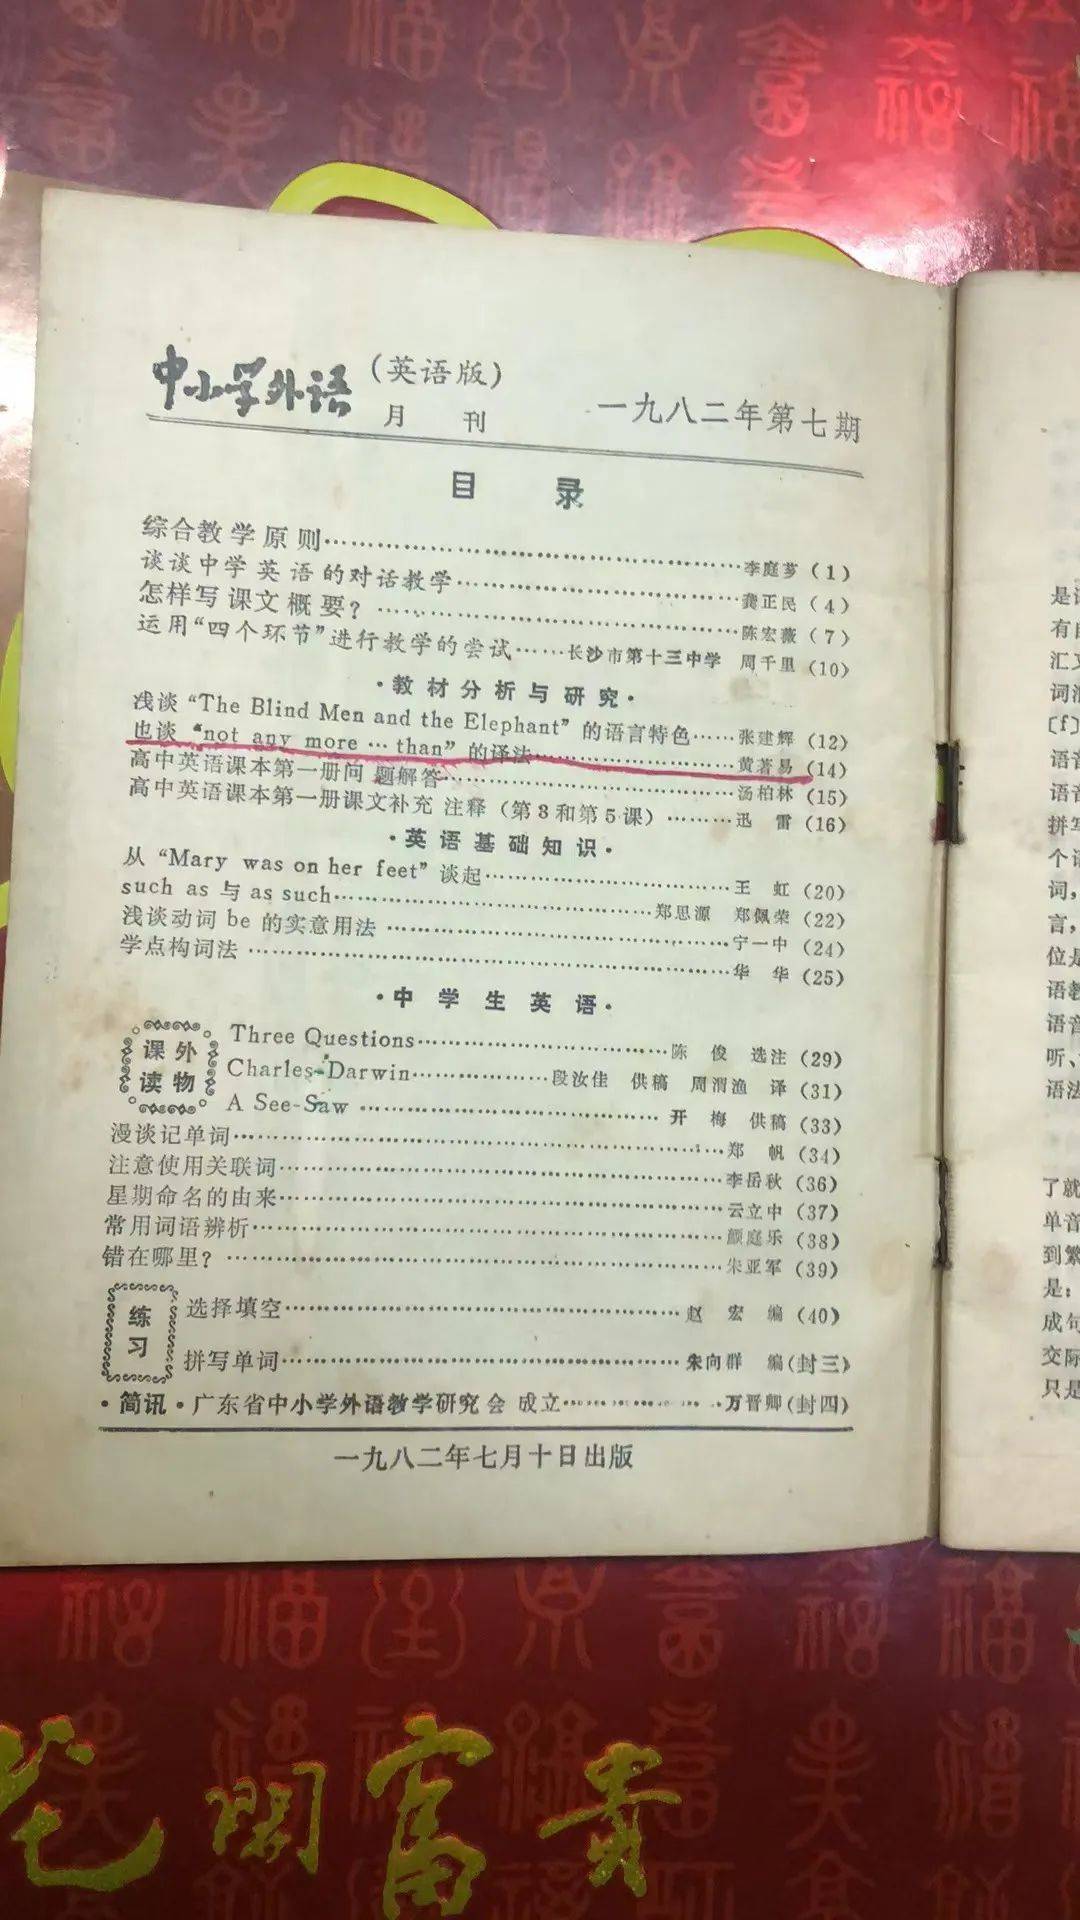 中小学外语（英语版）
月刊
一九八二年第七期
目录
综合教学原则……李庭芗（1）
谈谈中学英语的对话教学……龚正民（4）
怎样写课文概要？……陈宏薇（7）
运用“四个环节”进行教学的尝试……长沙市第十三中学 周千里（10）
·教材分析与研究·
浅谈“The Blind Men and the Elephant”的语言特色……张建辉（12）
也谈“not any more … than”的译法……黄著易（14）
高中英语课本第一册问题解答……汤柏林（15）
高中英语课本第一册课文补充注释（第3和第5课）……迅雷（16）
·英语基础知识·
从“Mary was on her feet”谈起……王虹（20）
such as 与 as such……郑思源 郑佩荣（22）
浅谈动词 be 的实意用法……宁一中（24）
学点构词法……华华（25）
·中学生英语·
课外读物
Three Questions……陈俊 选注（29）
Charles Darwin……段汝佳 供稿 周渭渔 译（31）
A See-Saw……开梅 供稿（33）
漫谈记单词……郑帆（34）
注意使用关联词……李岳秋（36）
星期命名的由来……云立中（37）
常用词语辨析……颜庭乐（38）
错在哪里？……朱亚军（39）
练习
选择填空……赵宏 编（40）
拼写单词……朱向群 编（封三）
·简讯·广东省中小学外语教学研究会成立……万晋卿（封四）
一九八二年七月十日出版
是
有
汇
词
[f]
语音
语音
拼写
个
词，
言，
位是
语教
语音
听、
语法
了就
单音
到繁
是：
成句
交际
只是
花開富貴